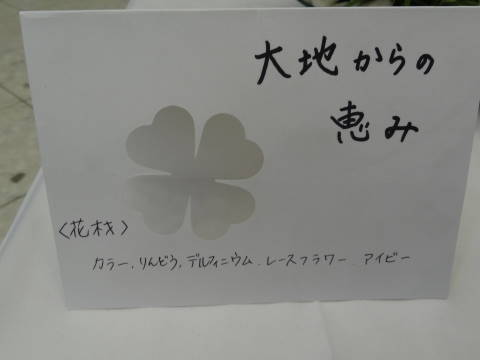 大地からの
恵み
〈花材〉
カラー、りんどう、デルフィニウム、レースフラワー、アイビー